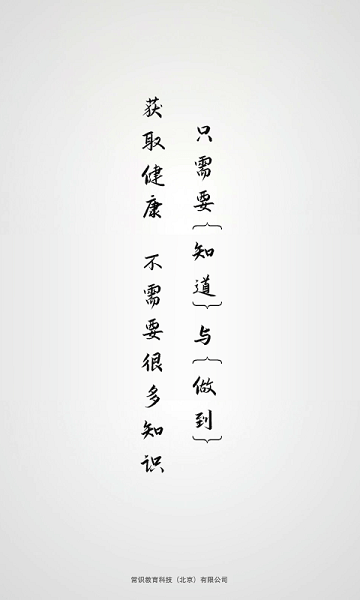 获取健康 不需要很多知识
只需要{知道}与{做到}
常识教育科技（北京）有限公司